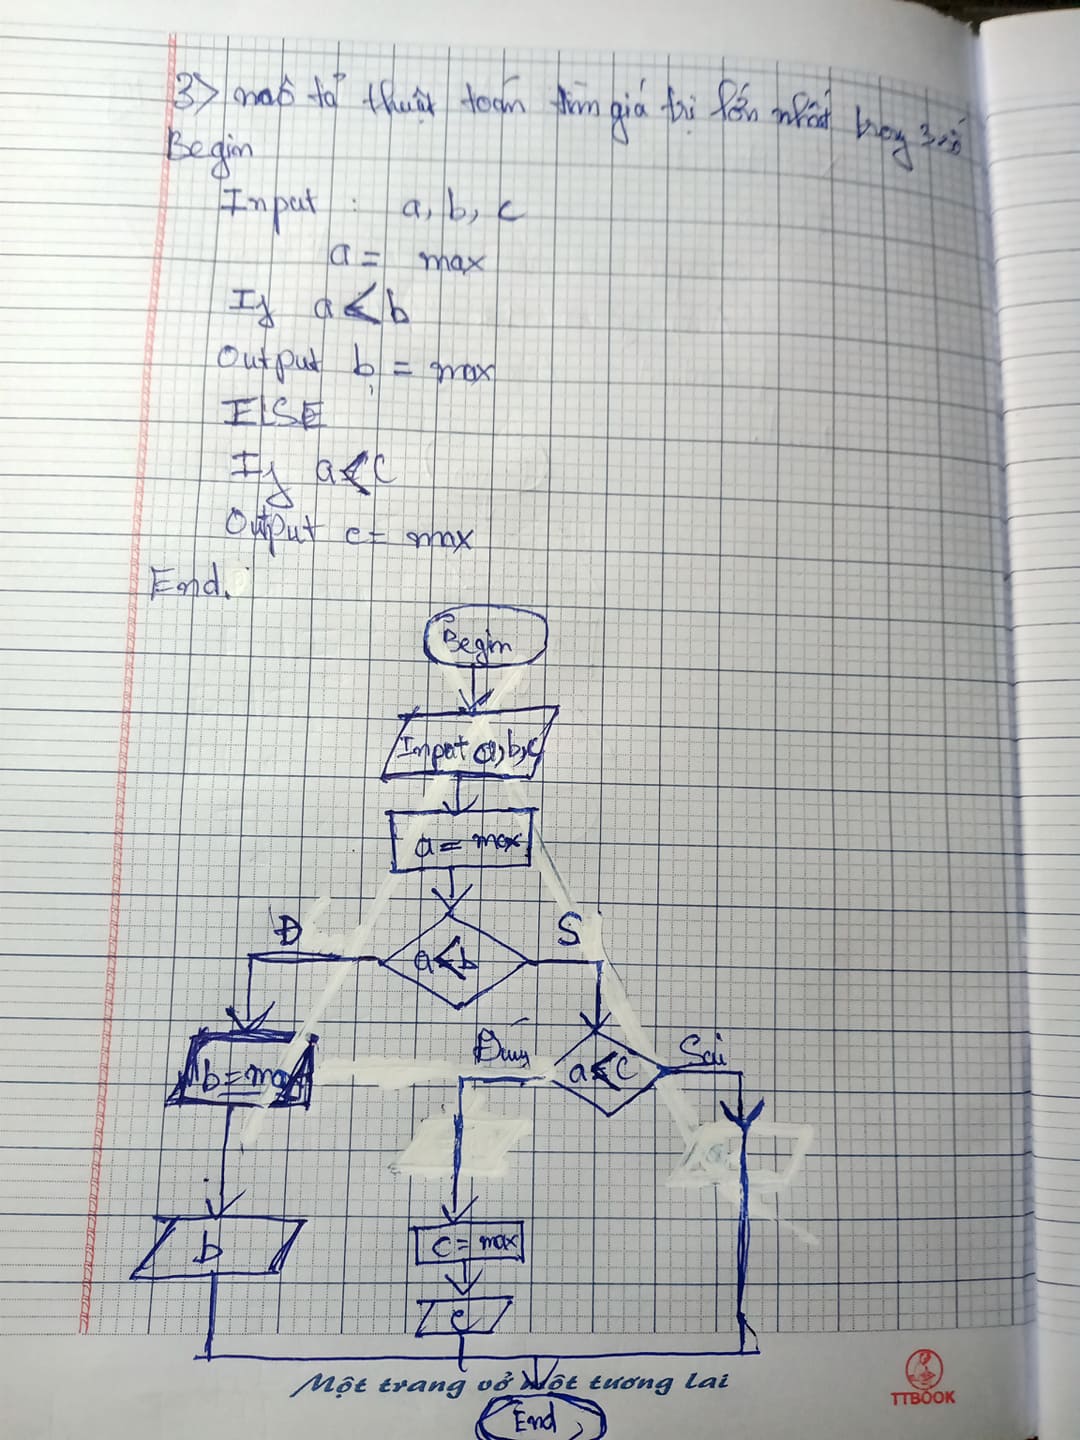 3> mô tả thuật toán tìm giá trị lớn nhất trong 3 số
Begin
Input : a, b, c
a = max
If a < b
Output b = max
ELSE
If a < c
Output c = max
End.
Begin
Input a, b, c
a = max
a < b
Đ
S
b = max
a < c
Đúng
Sai
b
c = max
c
Một trang vở một tương lai
TTBOOK
End